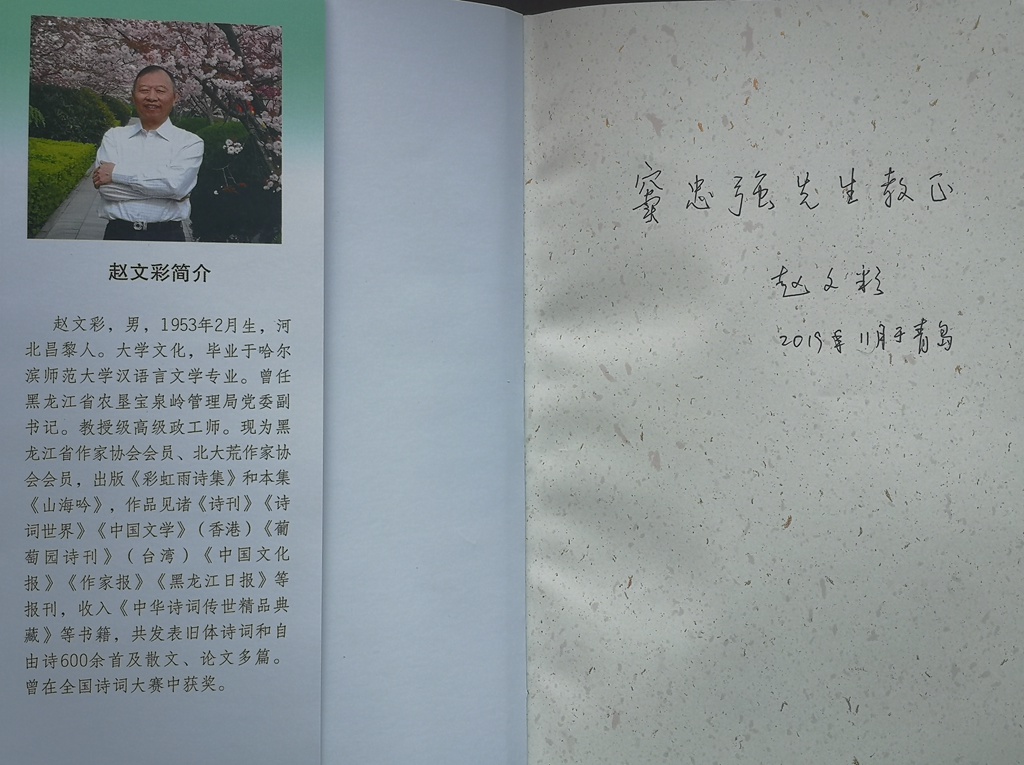 赵文彩简介
赵文彩，男，1953年2月生，河
北昌黎人。大学文化，毕业于哈尔
滨师范大学汉语言文学专业。曾任
黑龙江省农垦宝泉岭管理局党委副
书记。教授级高级政工师。现为黑
龙江省作家协会会员、北大荒作家协
会会员，出版《彩虹雨诗集》和本集
《山海吟》，作品见诸《诗刊》《诗
词世界》《中国文学》（香港）《葡
萄园诗刊》（台湾）《中国文化
报》《作家报》《黑龙江日报》等
报刊，收入《中华诗词传世精品典
藏》等书籍，共发表旧体诗词和自
由诗600余首及散文、论文多篇。
曾在全国诗词大赛中获奖。
窦忠强先生教正
赵文彩
2019年11月于青岛